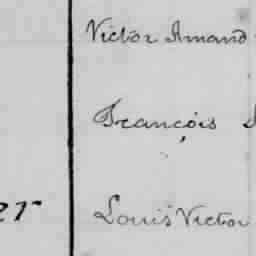 Victor Amand
François
er
Louis Victor